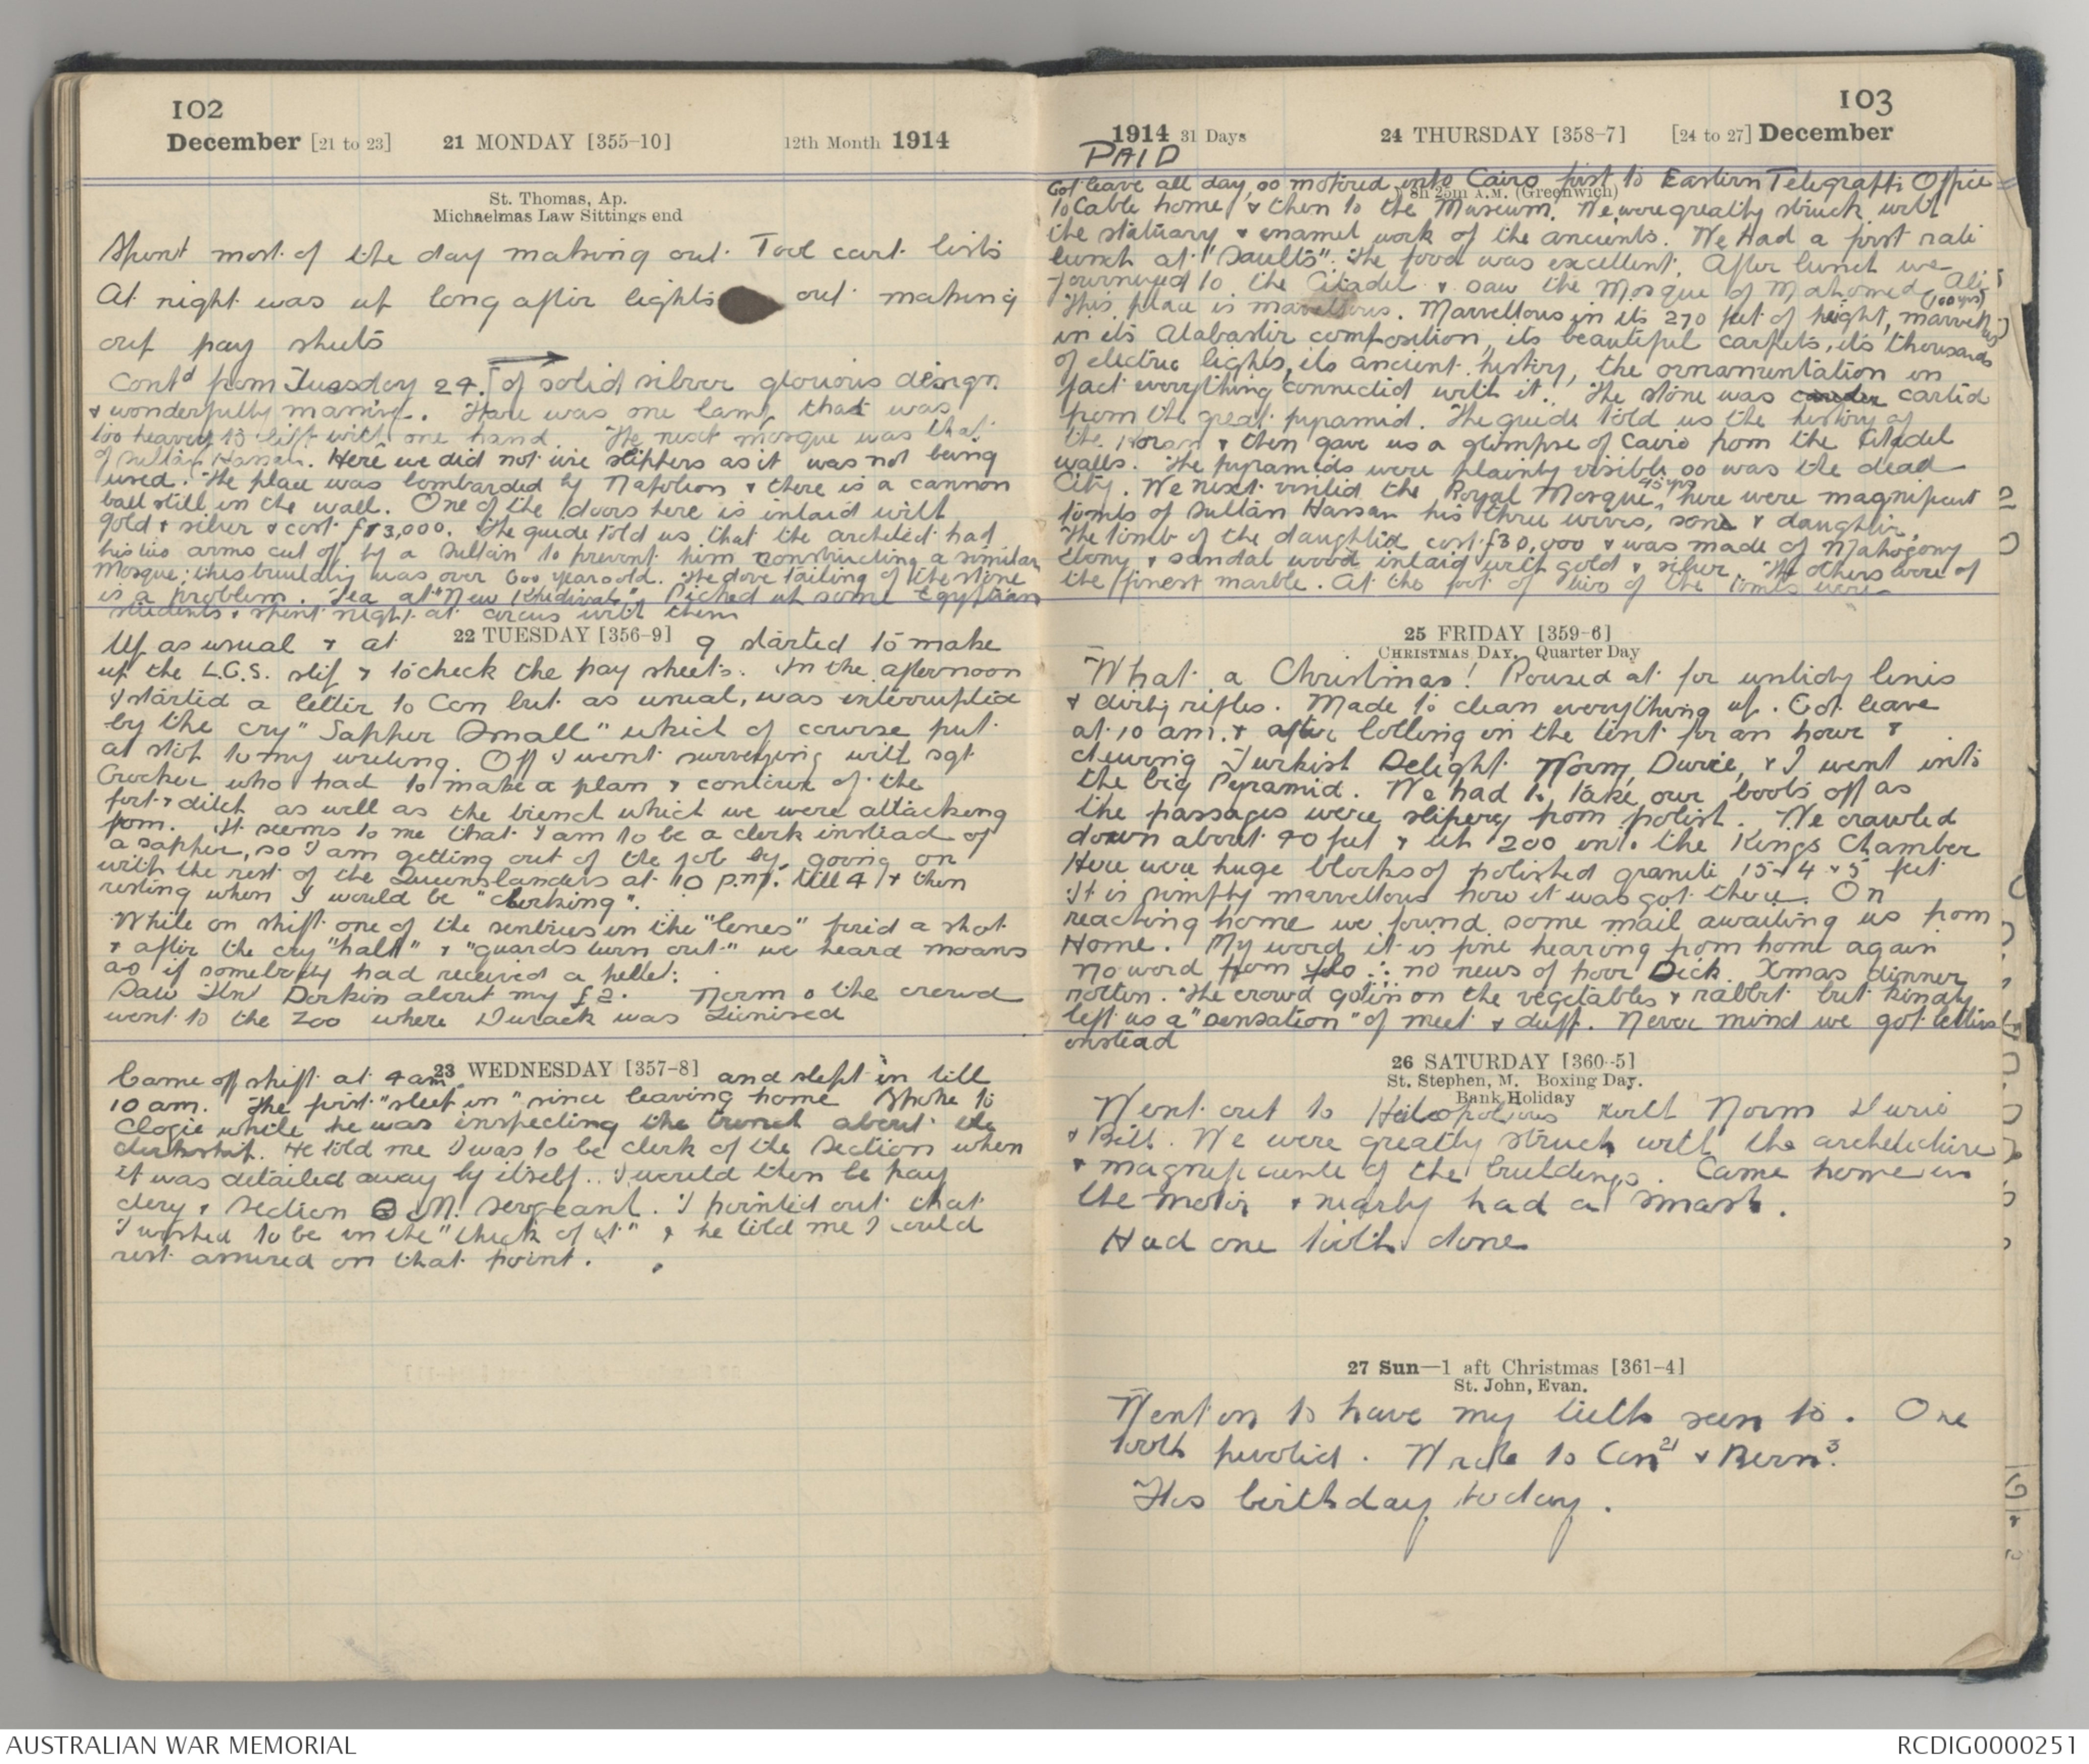 102
December [21 to 23] 21 MONDAY [355-10] 12th Month 1914
St. Thomas, Ap.
Michaelmas Law Sittings end
Spent most of the day making out Tool cart lists
At night was up long after lights out making
out pay sheets
Contd from Tuesday 24. [of solid silver glorious design
& wonderfully massive. There was one lamp that was
too heavy to lift with one hand. The next mosque was that
of Sultan Hassan. Here we did not use slippers as it was not being
used. The place was bombarded by Napoleon & there is a cannon
ball still in the wall. One of the doors here is inlaid with
gold & silver & cost £13,000. The guide told us that the architect had
his two arms cut off by a Sultan to prevent him constructing a similar
Mosque; this building was over 600 years old. The dove tailing of the stone
is a problem. Tea at "New Khedivate" Picked up some Egyptian
students & spent night at circus with them
22 TUESDAY [356-9]
Up as usual & at 9 started to make
up the L.G.S. slip & to check the pay sheets. In the afternoon
I started a letter to Con but as usual, was interrupted
by the cry "Sapper Small" which of course put
a stop to my writing. Off I went surveying with sgt
Crocker who had to make a plan & contour of the
fort & ditch as well as the trench which we were attacking
from. It seems to me that I am to be a clerk instead of
a sapper, so I am getting out of the job by going on
with the rest of the Queenslanders at 10 p.m. till 4 & then
resting when I would be "clerking".
While on shift one of the sentries in the "lines" fired a shot
& after the cry "halt" & "guards turn out" we heard moans
as if somebody had received a pellet.
Saw Dorkin about my £2. Norm & the crowd
went to the Zoo where Durack was
23 WEDNESDAY [357-8]
Came off shift at 4 am and slept in till
10 am. The first "sleep in" since leaving home Spoke to
Clogie while he was inspecting the trench about the
clerkship. He told me I was to be clerk of the Section when
it was detailed away by itself. I would then be pay
clery & Section Q M. sergeant. I pointed out that
I wished to be in the "thick of it" & he told me I could
rest assured on that point.
103
1914 31 Days 24 THURSDAY [358-7] [24 to 27] December
PAID
8h 25m A.M. (Greenwich)
Got leave all day so motored into Cairo first to Eastern Telegraph Office
to Cable home & then to the Museum. We were greatly struck with
the statuary & enamel work of the ancients. We had a first rate
lunch at "Saults". The food was excellent. After lunch we
journeyed to the Citadel & saw the Mosque of Mahomed Ali
This place is marvellous. (100 yrs) Marvellous in its 270 feet of height, marvellous
in its Alabaster composition, its beautiful carpets, its thousands
of electric lights, its ancient history, the ornamentation in
fact everything connected with it. The stone was carted
from the great pyramid. The guide told us the history of
the Koran & then gave us a glimpse of Cairo from the Citadel
walls. The pyramids were plainly visible so was the dead
City. We next visited the Royal Mosque, 45 yrs here were magnificent
tombs of Sultan Hassan his three wives, sons & daughter,
The tomb of the daughter cost £30,000 & was made of Mahogony
Ebony & sandal wood inlaid with gold & silver. The others were of
the finest marble. At the foot of two of the tombs were
25 FRIDAY [359-6]
CHRISTMAS DAY. Quarter Day
What a Christmas! Roused at for untidy lines
& dirty rifles. Made to clean everything up. Got leave
at 10 am. & after lolling in the tent for an hour &
chewing Turkist Delight Norm, Durie, & I went into
the big Pyramid. We had to take our boots off as
the passages were slipery from polish. We crawled
down about 40 feet & up 200 into the Kings Chamber
Here were huge blocks of polished granite 15 x 4 x 5 feet
It is simply marvellous how it was got there. On
reaching home we found some mail awaiting us from
Home. My word it is fine hearing from home again
No word from Flo ∴ no news of poor Dick. Xmas dinner
rotten. The crowd got in on the vegetables & rabbit but kindly
left us a "sensation" of meet & duff. Never mind we got letters
instead
26 SATURDAY [360-5]
St. Stephen, M. Boxing Day.
Bank Holiday
Went out to Heliopolious with Norm Durie
& Bill. We were greatly struck with the archetecture
& magnificente of the buildings. Came home in
the motor & nearly had a smash.
Had one tooth done
27 Sun—1 aft Christmas [361-4]
St. John, Evan.
Went in to have my teeth seen to. One
tooth pivoted. Wrote to Con 21 & Bern 3.
His birthday today.
AUSTRALIAN WAR MEMORIAL
RCDIG0000251